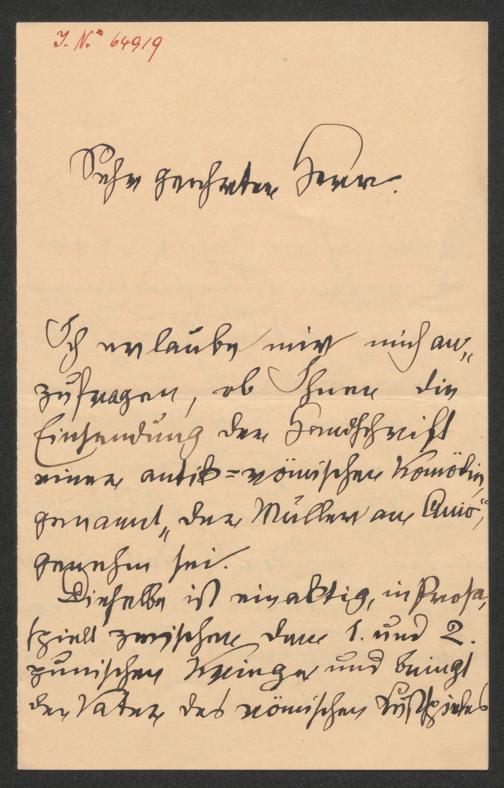 J. N.° 64919
Sehr geehrter Herr.
Ich erlaube mir mich an„
zufragen, ob Ihnen die
Einsendung der Handschrift
einer antik=römischen Komödie,
genannt „der Müller am Anio“,
genehm sei.
Dieselbe ist einaktig, in Prosa,
spielt zwischen dem 1. und 2.
punischen Kriege und bringt
den Vater des römischen Lustspieles